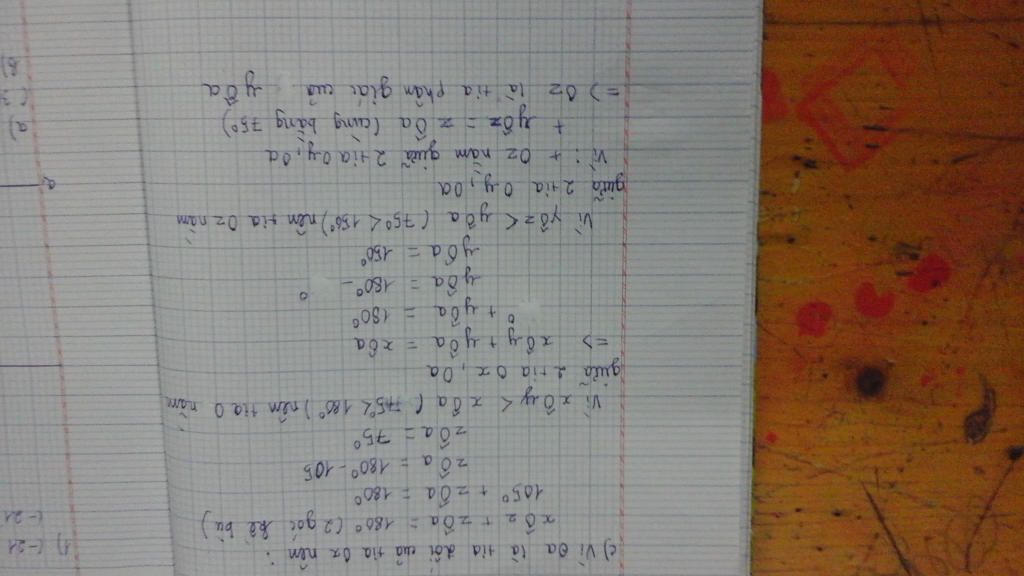 c) Vì Oa là tia đối của tia Ox nên :
xÔz + zÔa = 180° (2 góc kề bù)
105° + zÔa = 180°
zÔa = 180° - 105
zÔa = 75°
Vì xÔy < xÔa ( 75° < 180°) nên tia O nằm
giữa 2 tia Ox, Oa
=> xÔy + yÔa = xÔa
° + yÔa = 180°
yÔa = 180° - °
yÔa = 150°
Vì yÔz < yÔa ( 75° < 150°) nên tia Oz nằm
giữa 2 tia Oy, Oa
Vì : + Oz nằm giữa 2 tia Oy, Oa
+ yÔz = zÔa (cùng bằng 75°)
=> Oz là tia phân giác của yÔa
1) (-21
(-21
a
a)
b)